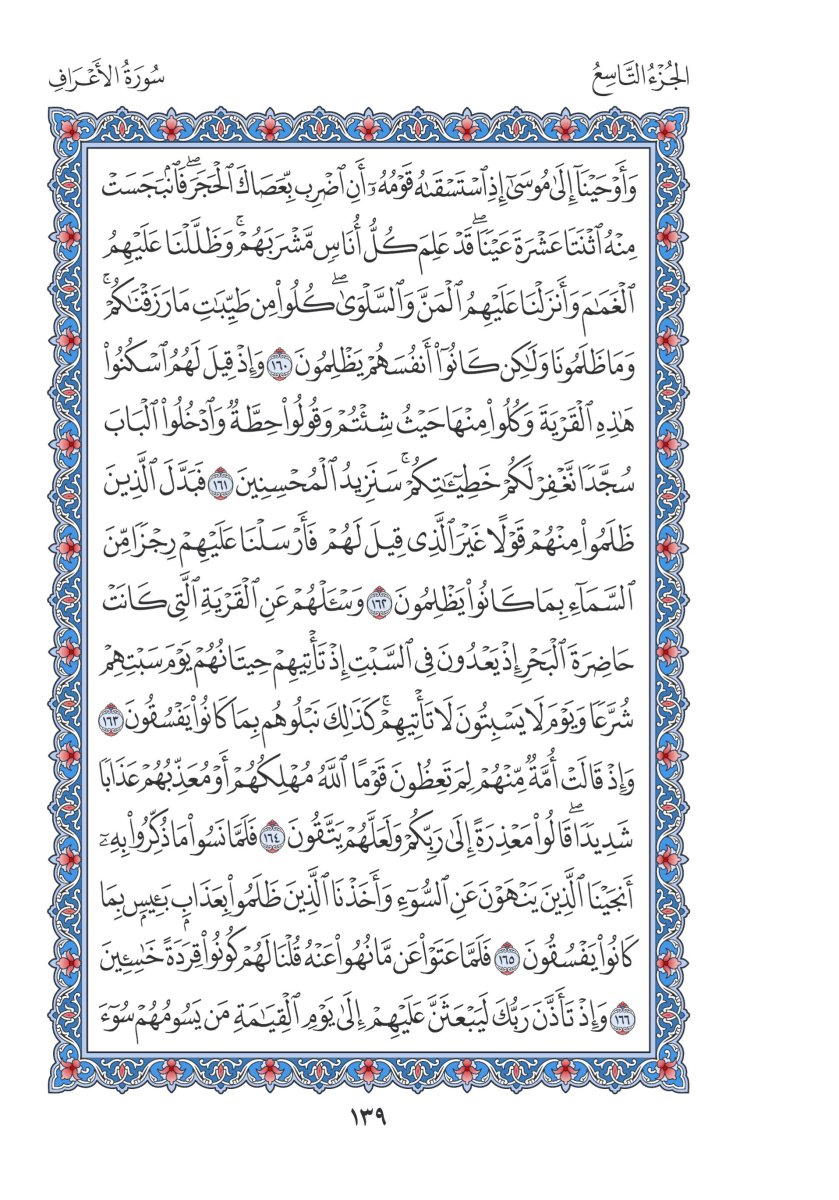 الجُزْءُ التَّاسِعُ
سُورَةُ الأَعْرَافِ
وَأَوْحَيْنَآ إِلَىٰ مُوسَىٰٓ إِذِ ٱسْتَسْقَىٰهُ قَوْمُهُۥٓ أَنِ ٱضْرِب بِّعَصَاكَ ٱلْحَجَرَۖ فَٱنۢبَجَسَتْ
مِنْهُ ٱثْنَتَا عَشْرَةَ عَيْنًاۖ قَدْ عَلِمَ كُلُّ أُنَاسٍ مَّشْرَبَهُمْۚ وَظَلَّلْنَا عَلَيْهِمُ
ٱلْغَمَٰمَ وَأَنزَلْنَا عَلَيْهِمُ ٱلْمَنَّ وَٱلسَّلْوَىٰۖ كُلُوا۟ مِن طَيِّبَٰتِ مَا رَزَقْنَٰكُمْۚ
وَمَا ظَلَمُونَا وَلَٰكِن كَانُوٓا۟ أَنفُسَهُمْ يَظْلِمُونَ ١٦٠ وَإِذْ قِيلَ لَهُمُ ٱسْكُنُوا۟
هَٰذِهِ ٱلْقَرْيَةَ وَكُلُوا۟ مِنْهَا حَيْثُ شِئْتُمْ وَقُولُوا۟ حِطَّةٌ وَٱدْخُلُوا۟ ٱلْبَابَ
سُجَّدًا نَّغْفِرْ لَكُمْ خَطِيٓـَٰٔتِكُمْۚ سَنَزِيدُ ٱلْمُحْسِنِينَ ١٦١ فَبَدَّلَ ٱلَّذِينَ
ظَلَمُوا۟ مِنْهُمْ قَوْلًا غَيْرَ ٱلَّذِى قِيلَ لَهُمْ فَأَرْسَلْنَا عَلَيْهِمْ رِجْزًا مِّنَ
ٱلسَّمَآءِ بِمَا كَانُوا۟ يَظْلِمُونَ ١٦٢ وَسْـَٔلْهُمْ عَنِ ٱلْقَرْيَةِ ٱلَّتِى كَانَتْ
حَاضِرَةَ ٱلْبَحْرِ إِذْ يَعْدُونَ فِى ٱلسَّبْتِ إِذْ تَأْتِيهِمْ حِيتَانُهُمْ يَوْمَ سَبْتِهِمْ
شُرَّعًا وَيَوْمَ لَا يَسْبِتُونَ لَا تَأْتِيهِمْۚ كَذَٰلِكَ نَبْلُوهُم بِمَا كَانُوا۟ يَفْسُقُونَ ١٦٣
وَإِذْ قَالَتْ أُمَّةٌ مِّنْهُمْ لِمَ تَعِظُونَ قَوْمًا ٱللَّهُ مُهْلِكُهُمْ أَوْ مُعَذِّبُهُمْ عَذَابًا
شَدِيدًاۖ قَالُوا۟ مَعْذِرَةً إِلَىٰ رَبِّكُمْ وَلَعَلَّهُمْ يَتَّقُونَ ١٦٤ فَلَمَّا نَسُوا۟ مَا ذُكِّرُوا۟ بِهِۦٓ
أَنجَيْنَا ٱلَّذِينَ يَنْهَوْنَ عَنِ ٱلسُّوٓءِ وَأَخَذْنَا ٱلَّذِينَ ظَلَمُوا۟ بِعَذَابٍۭ بَـِٔيسٍۭ بِمَا
كَانُوا۟ يَفْسُقُونَ ١٦٥ فَلَمَّا عَتَوْا۟ عَن مَّا نُهُوا۟ عَنْهُ قُلْنَا لَهُمْ كُونُوا۟ قِرَدَةً خَٰسِـِٔينَ
١٦٦ وَإِذْ تَأَذَّنَ رَبُّكَ لَيَبْعَثَنَّ عَلَيْهِمْ إِلَىٰ يَوْمِ ٱلْقِيَٰمَةِ مَن يَسُومُهُمْ سُوٓءَ
١٣٩